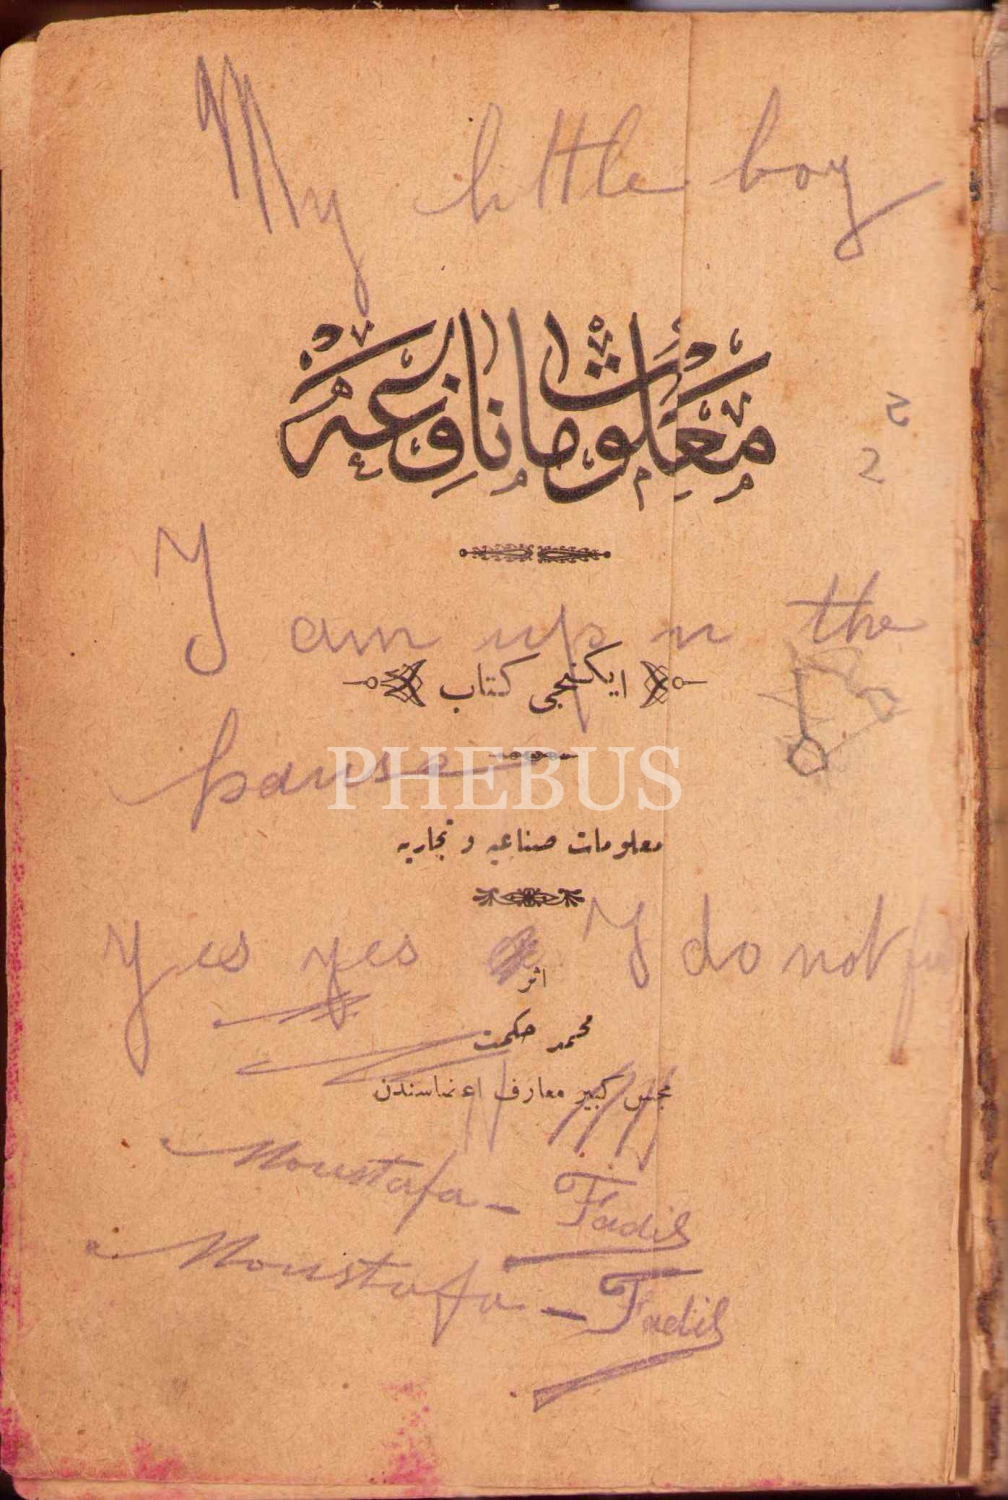 My little boy
معلومات نافعه
I am up in the
ايكنجى كتاب
house
PHEBUS
معلومات صناعيه و تجاريه
yes yes I do not
اثر
محمد حكمت
مجلس كبير معارف اعضاسندن
Moustafa - Fadil
Moustafa - Fadil